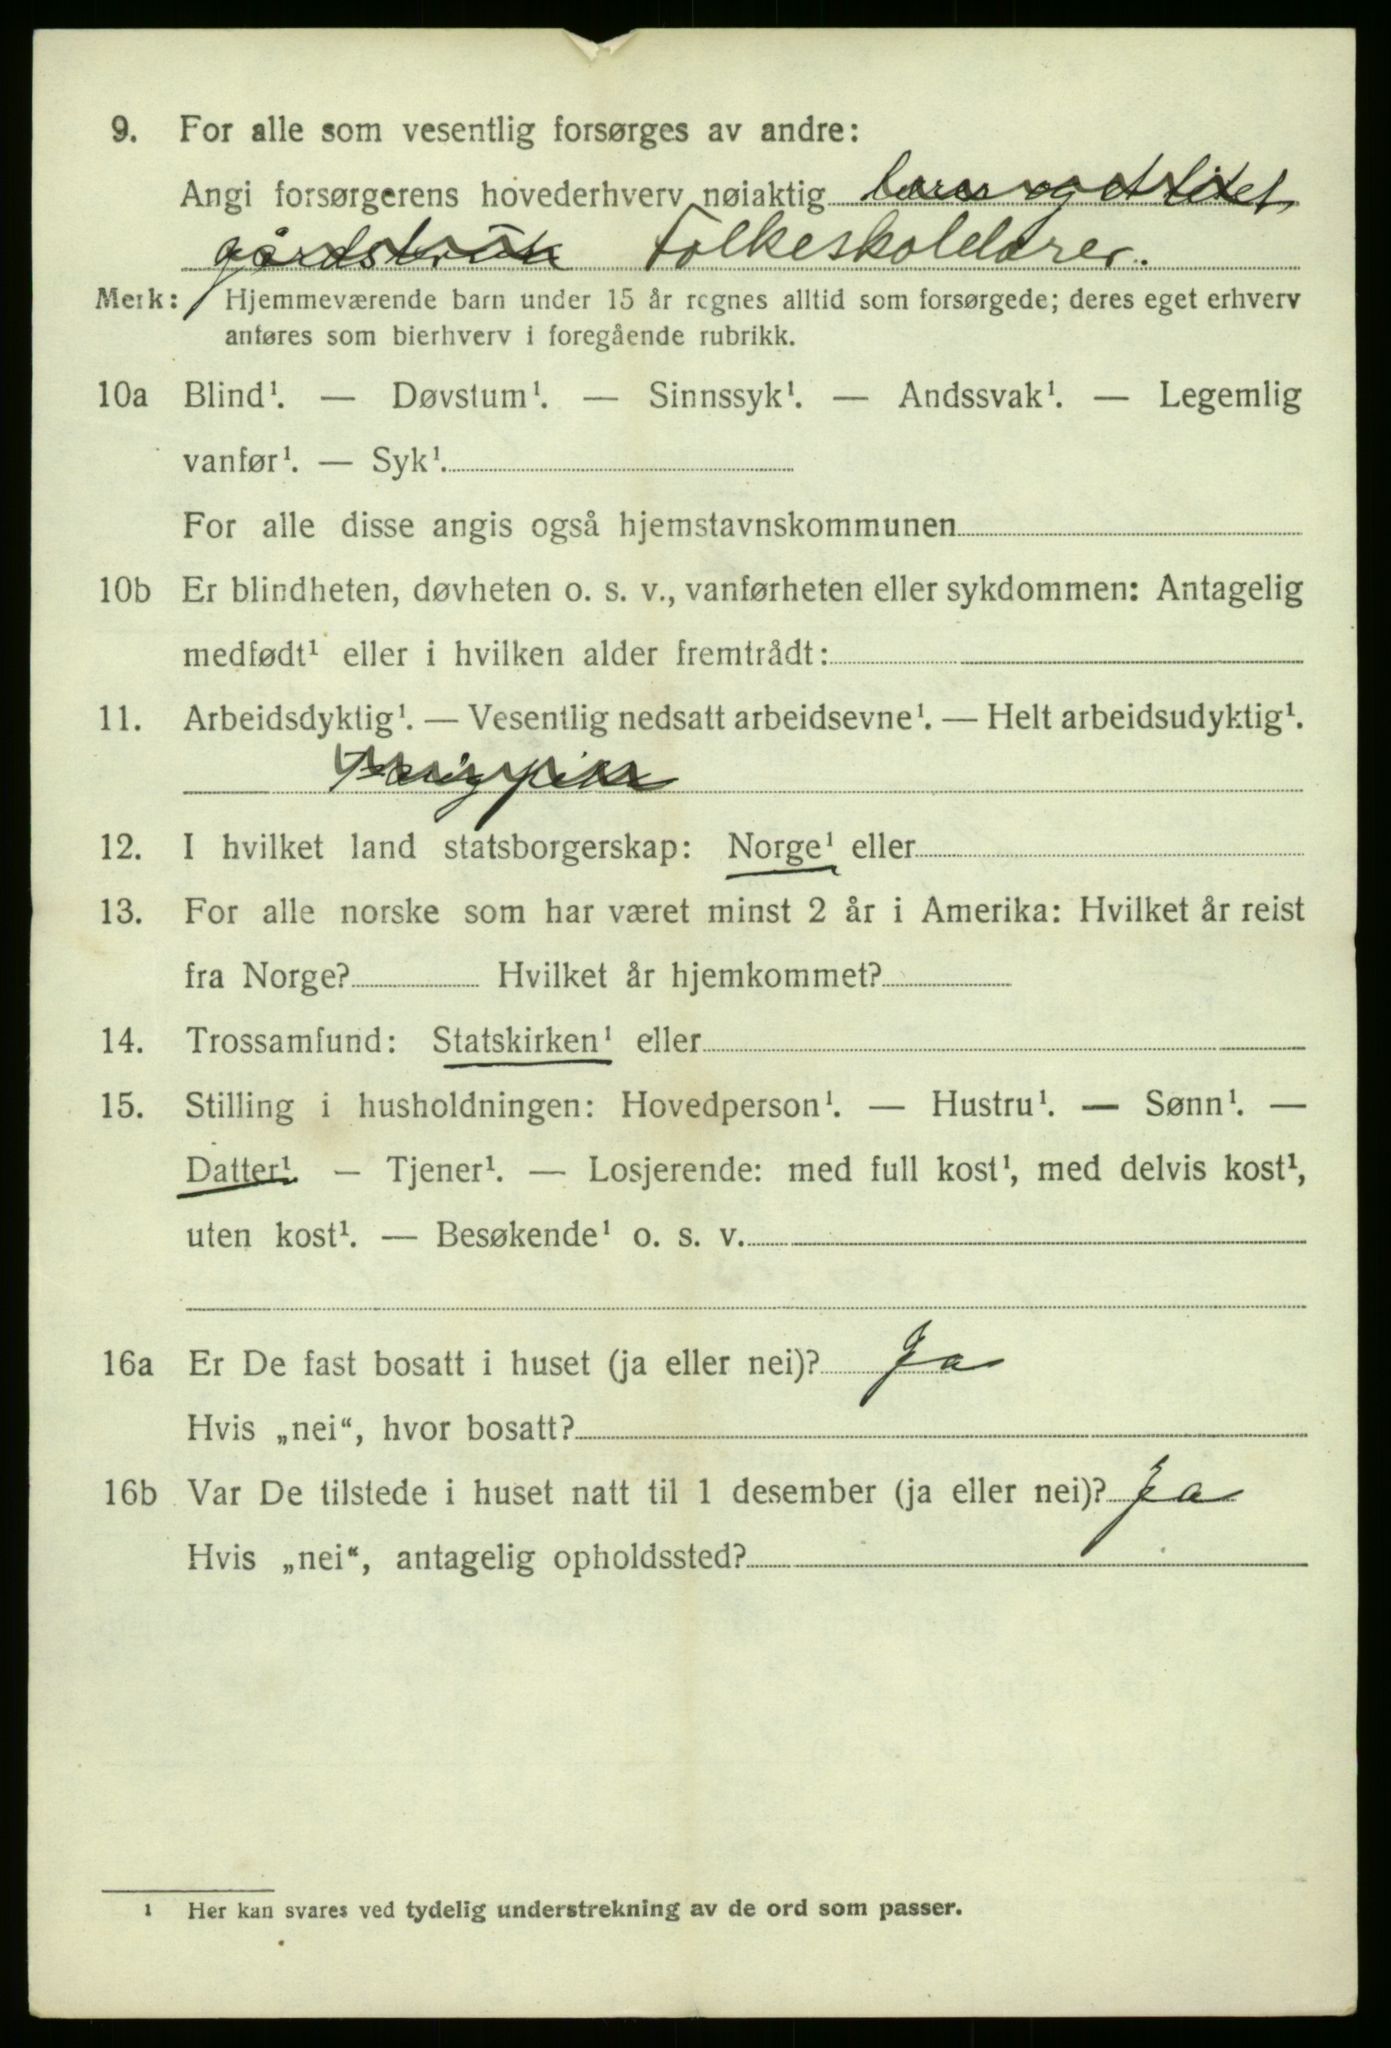 9. For alle som vesentlig forsørges av andre:
Angi forsørgerens hovederhverv nøiaktig lærer og et litet
gårdsbruk Folkeskolelærer.
Merk: Hjemmeværende barn under 15 år regnes alltid som forsørgede; deres eget erhverv
anføres som bierhverv i foregående rubrikk.
10a Blind¹. — Døvstum¹. — Sinnssyk¹. — Andssvak¹. — Legemlig
vanfør¹. — Syk¹.
For alle disse angis også hjemstavnskommunen
10b Er blindheten, døvheten o. s. v., vanførheten eller sykdommen: Antagelig
medfødt¹ eller i hvilken alder fremtrådt:
11. Arbeidsdyktig¹. — Vesentlig nedsatt arbeidsevne¹. — Helt arbeidsudyktig¹.
12. I hvilket land statsborgerskap: Norge¹ eller
13. For alle norske som har været minst 2 år i Amerika: Hvilket år reist
fra Norge? Hvilket år hjemkommet?
14. Trossamfund: Statskirken¹ eller
15. Stilling i husholdningen: Hovedperson¹. — Hustru¹. — Sønn¹. —
Datter¹. — Tjener¹. — Losjerende: med full kost¹, med delvis kost¹,
uten kost¹. — Besøkende¹ o. s. v.
16a Er De fast bosatt i huset (ja eller nei)? Ja
Hvis „nei“, hvor bosatt?
16b Var De tilstede i huset natt til 1 desember (ja eller nei)? Ja
Hvis „nei“, antagelig opholdssted?
1 Her kan svares ved tydelig understrekning av de ord som passer.